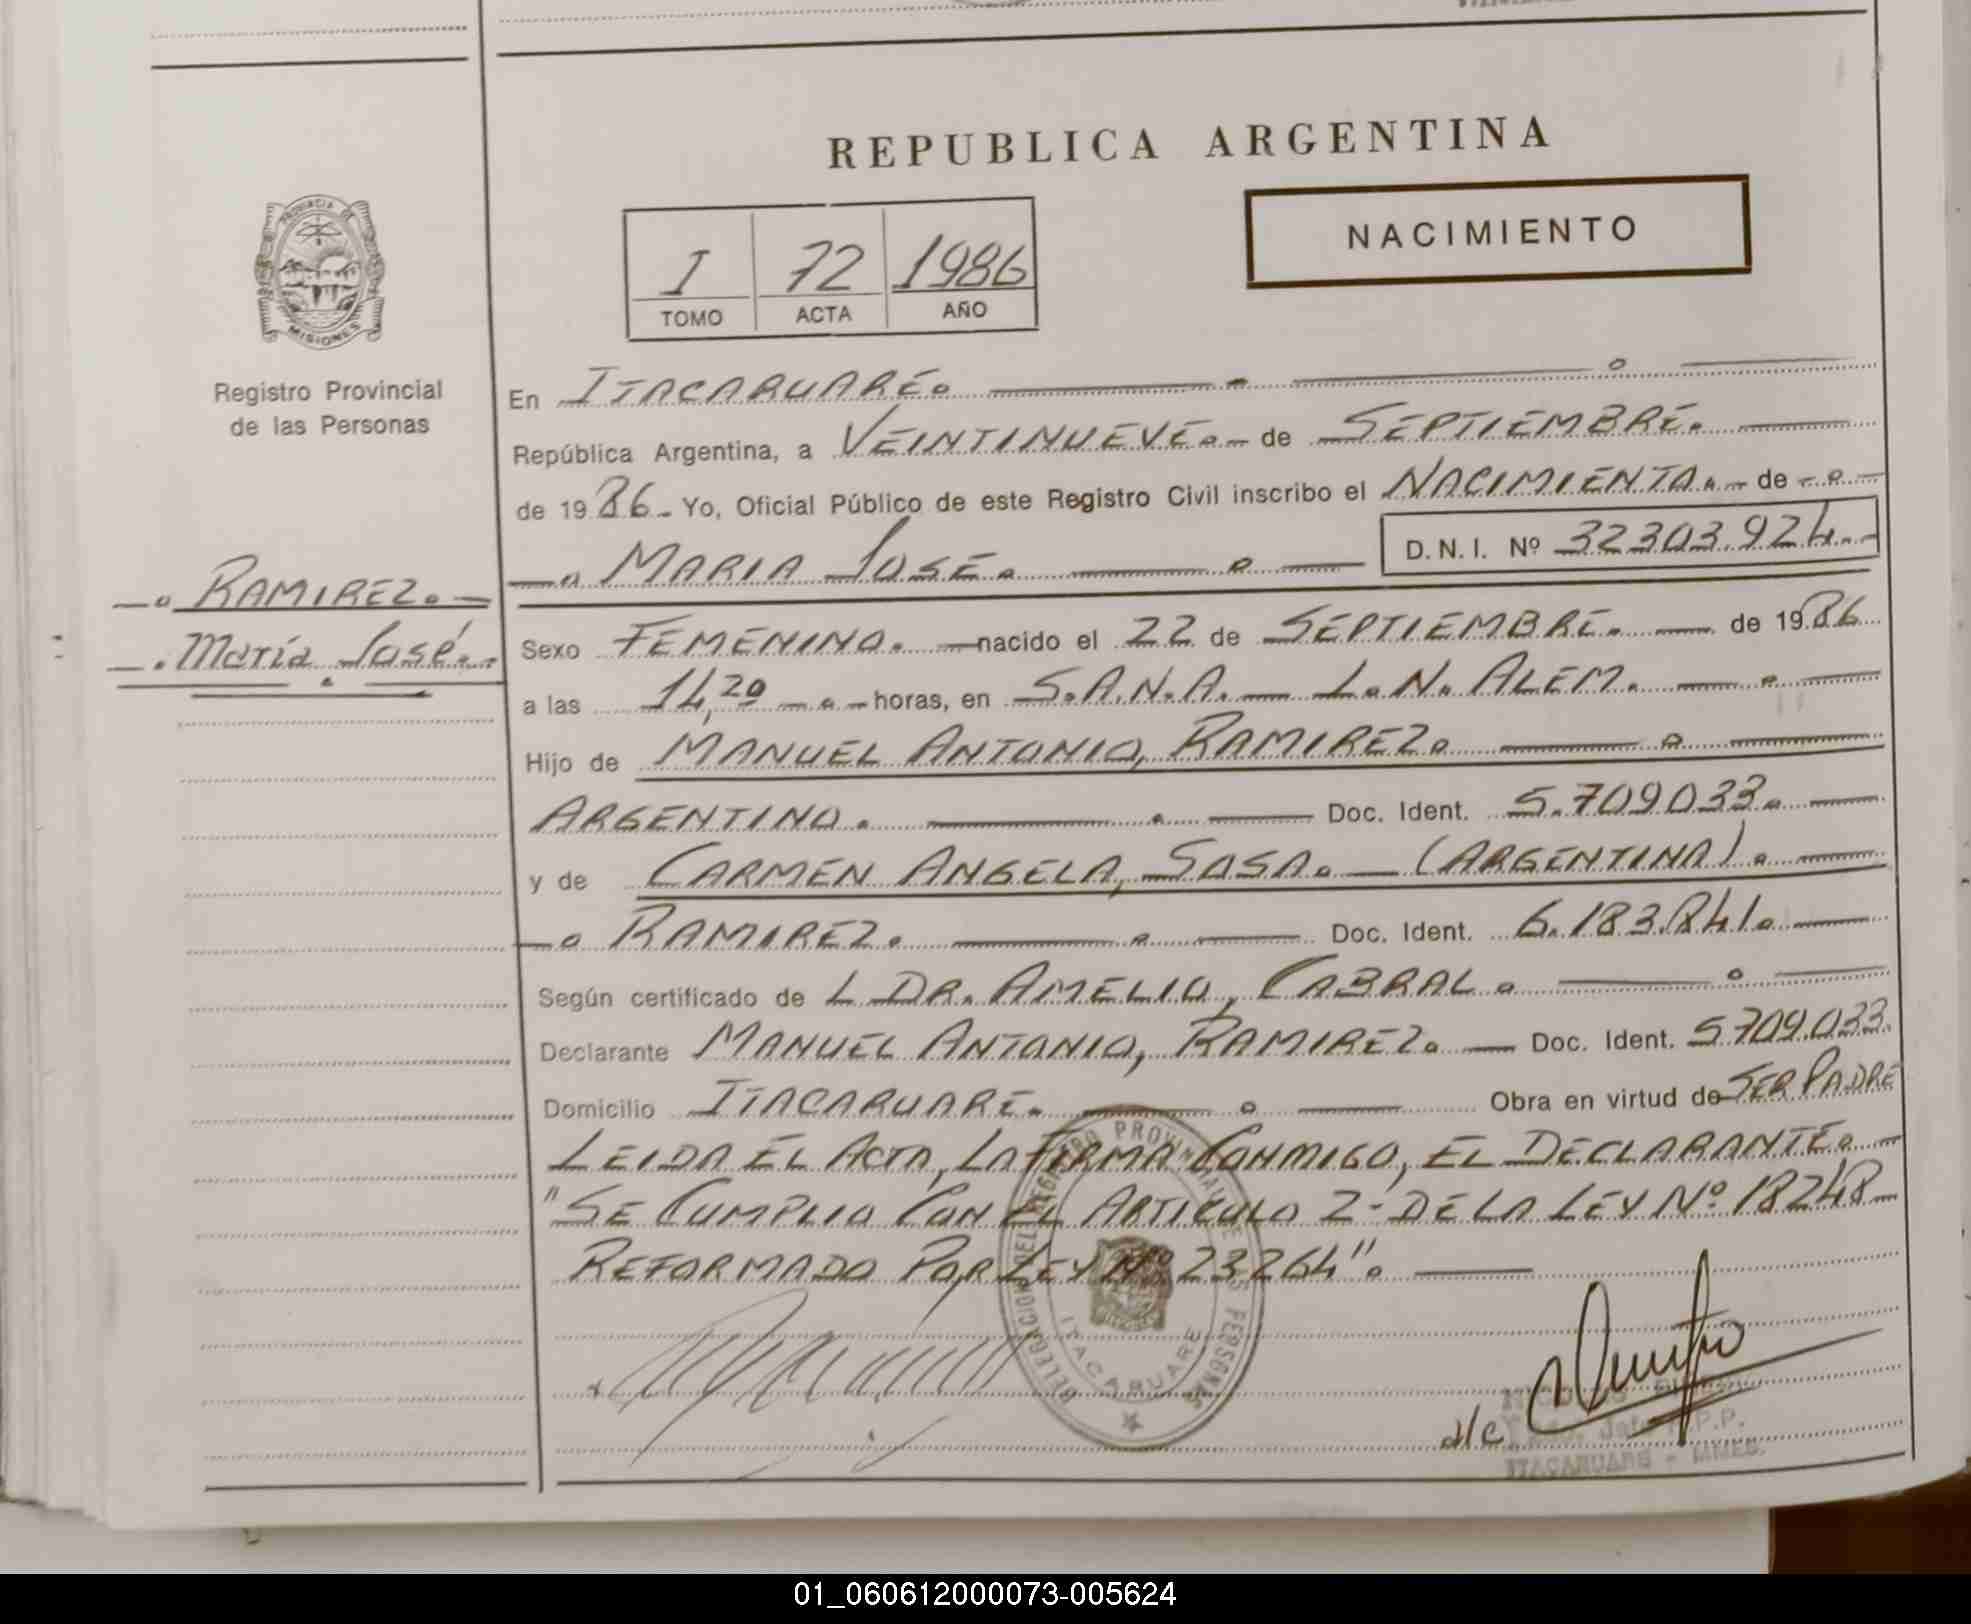 REPUBLICA ARGENTINA
NACIMIENTO
I 72 1986
TOMO ACTA AÑO
PROVINCIA DE
MISIONES
Registro Provincial
de las Personas
RAMIREZ.
María José.
En ITACARUARÉ.
República Argentina, a VEINTINUEVE.- de SEPTIEMBRE.
de 1986.- Yo, Oficial Público de este Registro Civil inscribo el NACIMIENTO.- de
MARIA JOSE. D.N.I. Nº 32303.924.-
Sexo FEMENINO. nacido el 22 de SEPTIEMBRE. de 1986
a las 14,20 horas, en S.A.N.A. — L.N. ALEM.
Hijo de MANUEL ANTONIO, RAMIREZ.
ARGENTINO. Doc. Ident. 5.709033.
y de CARMEN ANGELA, SOSA. — (ARGENTINA).
RAMIREZ. Doc. Ident. 6.183.841.
Según certificado de L DR. AMELIO, CABRAL.
Declarante MANUEL ANTONIO, RAMIREZ. Doc. Ident. 5709.033.
Domicilio ITACARUARE. Obra en virtud de SER PADRE
LEIDA EL ACTA, LA FIRMA CONMIGO, EL DECLARANTE.
"SE CUMPLIO CON EL ARTICULO 2- DE LA LEY Nº 18248
REFORMADO POR LEY Nº 23264".
DELEGACION DEL REGISTRO PROVINCIAL DE LAS PERSONAS
ITACARUARE
a/c
ITACARUARE - MNES.
01_060612000073-005624